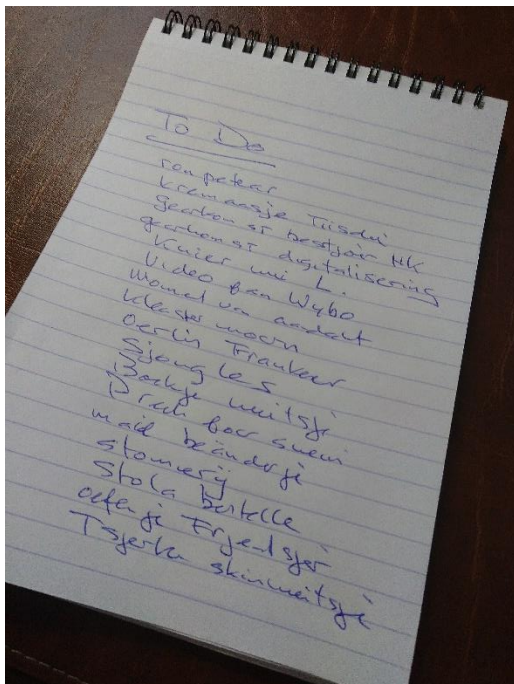 To Do
rompetear
Kremaasje Tiisdei
gearkomst bestjoir HK
gearkomst digitalisering
Kuier mei L.
Video fan Wybo
Kleaster moarn
oerlis Frentsjer
Sjongles
Boekje meitsje
maid beänderje
stomerij
Stola bestelle
oefenje Frjentsjer
Tsjerke skinmeitsje